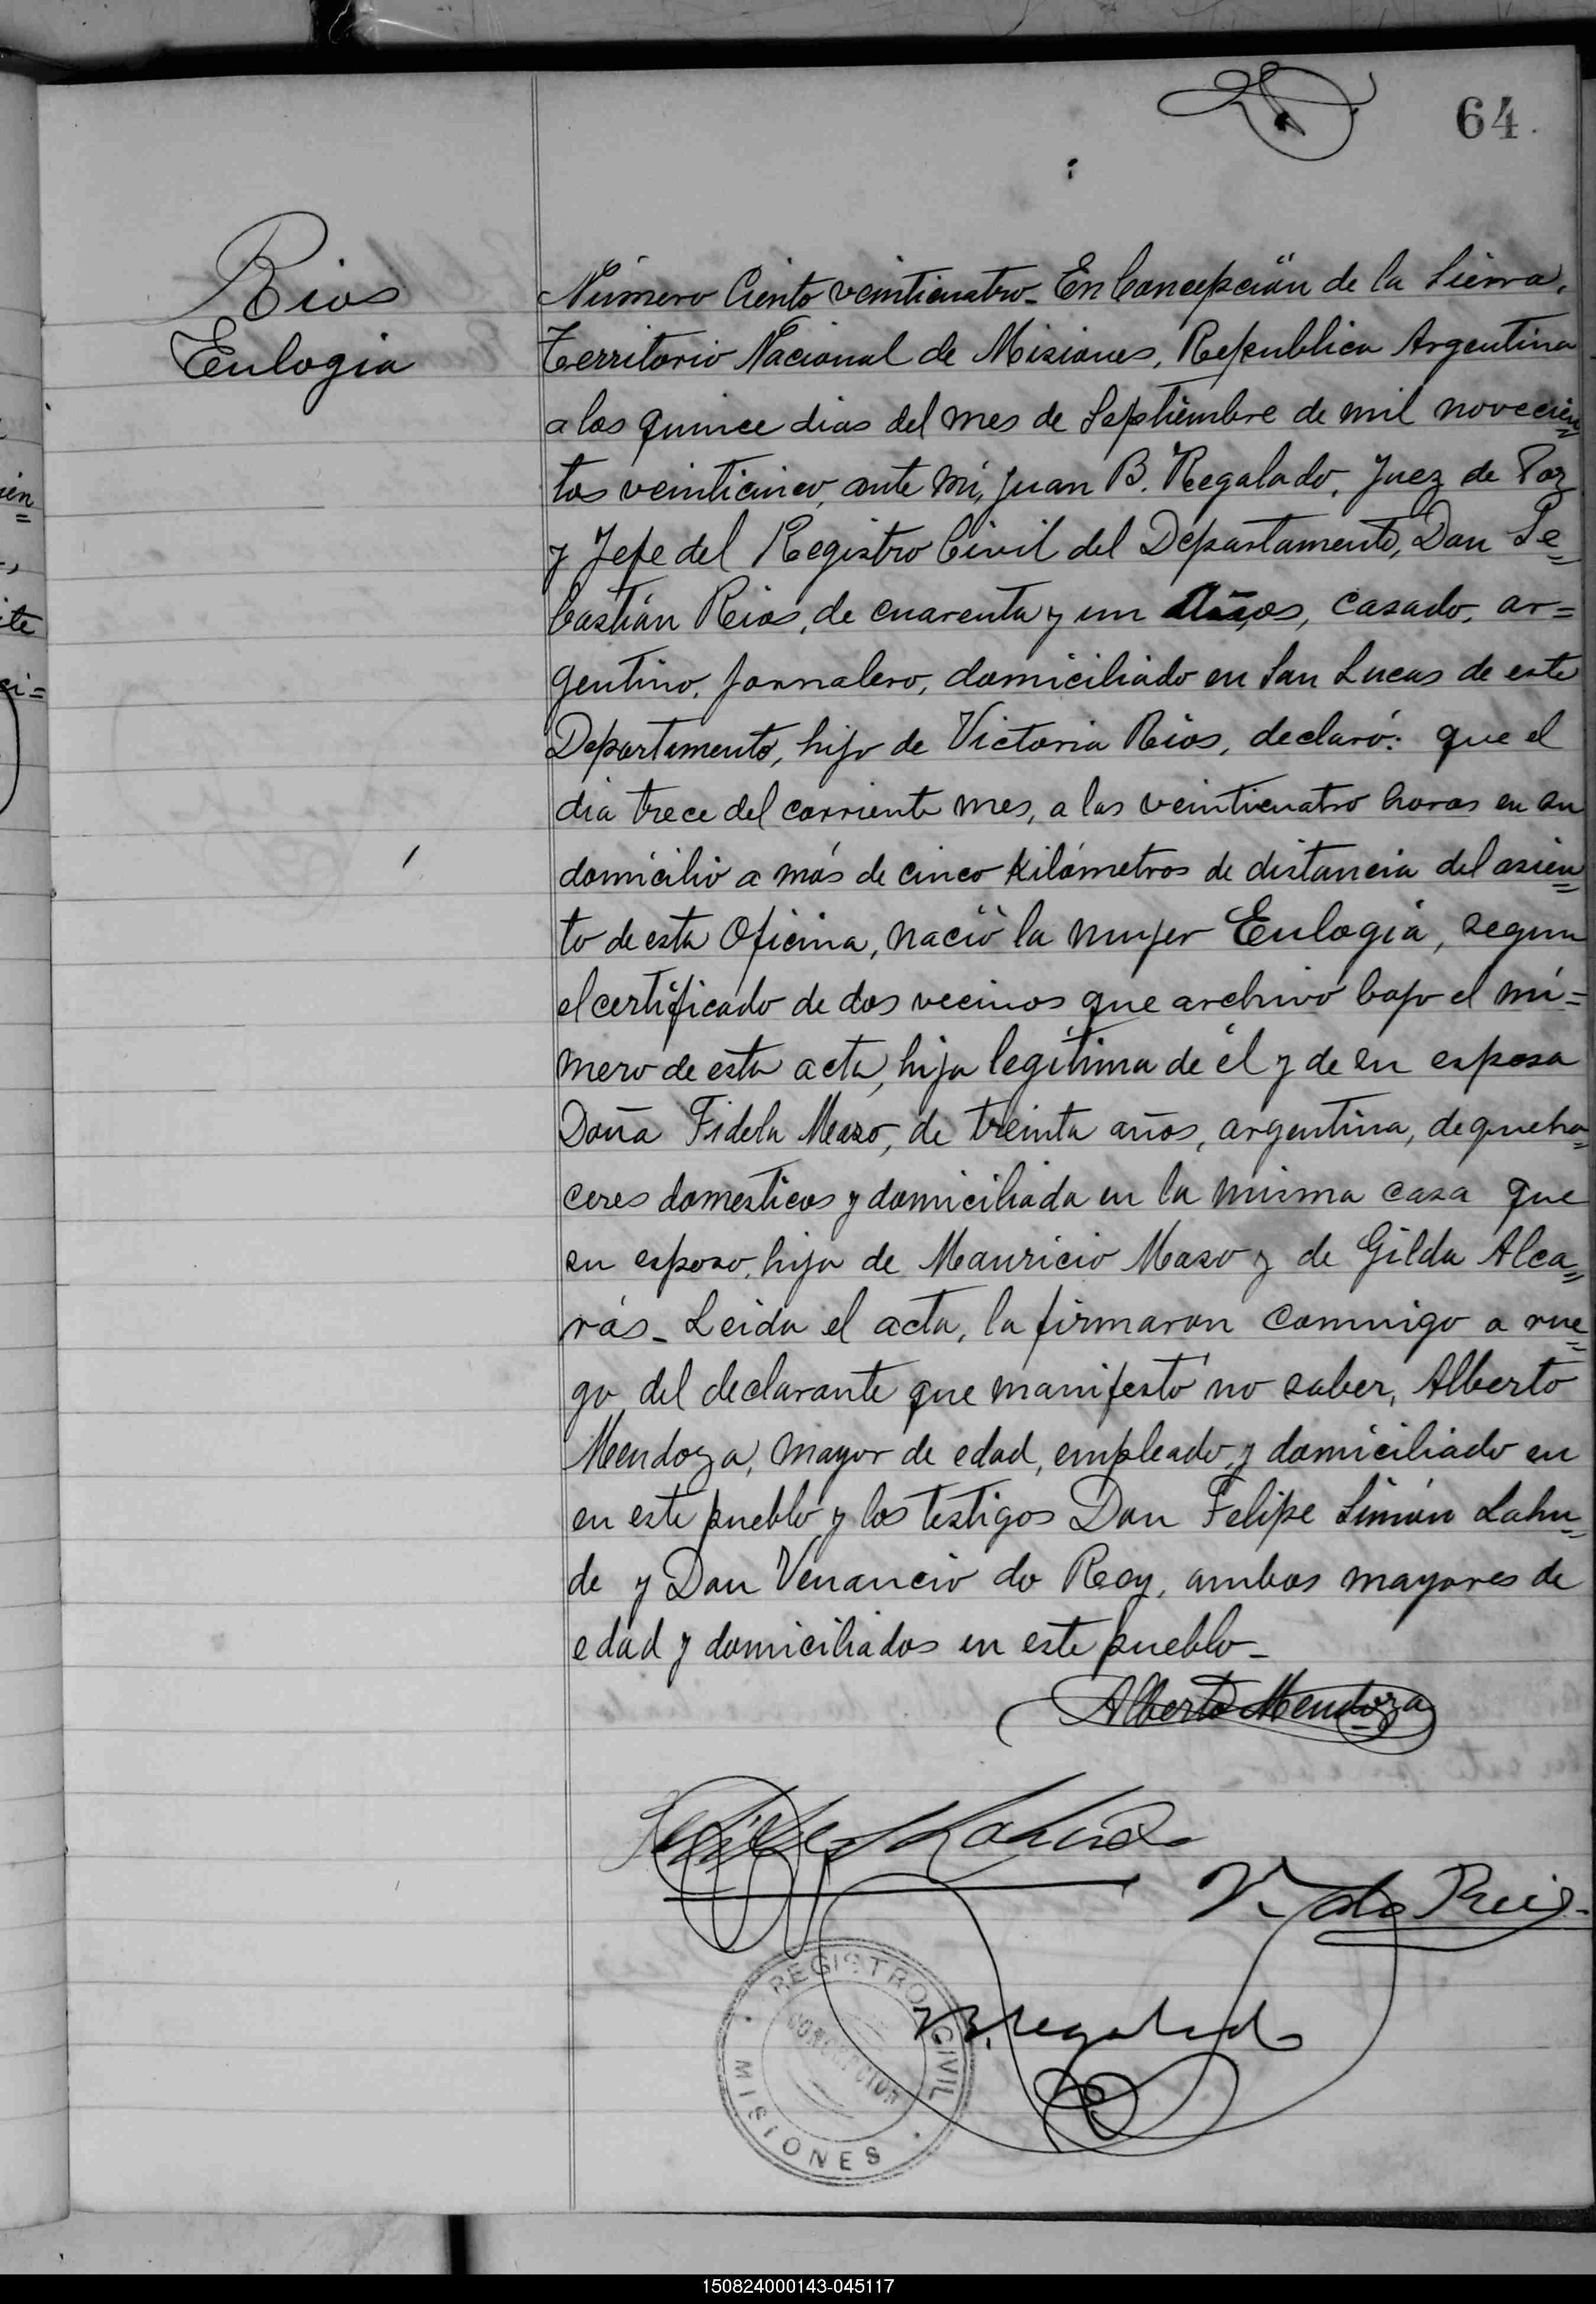 64.
Rios
Eulogia
Número Ciento veinticuatro_ En Concepción de la Sierra,
Territorio Nacional de Misiones, Republica Argentina
a los quince dias del mes de Septiembre de mil novecien=
tos veinticinco, ante mí, Juan B. Regalado, Juez de Paz
y Jefe del Registro Civil del Departamento, Don Se=
bastián Rios, de cuarenta y un años, casado, ar=
gentino, jornalero, domiciliado en San Lucas de este
Departamento, hijo de Victoria Rios, declaró: que el
dia trece del corriente mes, a las veinticuatro horas en su
domicilio a más de cinco kilómetros de distancia del asien=
to de esta Oficina, nació la mujer Eulogia, segun
el certificado de dos vecinos que archivo bajo el nú=
mero de esta acta, hija legítima de él y de su esposa
Doña Fidela Maso, de treinta años, argentina, de queha=
ceres domesticos y domiciliada en la misma casa que
su esposo, hija de Mauricio Maso y de Gilda Alca=
rás_ Leida el acta, la firmaron conmigo a rue=
go del declarante que manifestó no saber, Alberto
Mendoza, mayor de edad, empleado y domiciliado en
en este pueblo y los testigos Don Felipe Simón Lahu=
de y Don Venancio do Rey, ambos mayores de
edad y domiciliados en este pueblo_
Alberto Mendoza
Felipe S Lahude
V. do Rey
B. Regalado
REGISTRO CIVIL
CONCEPCION
MISIONES
150824000143-045117